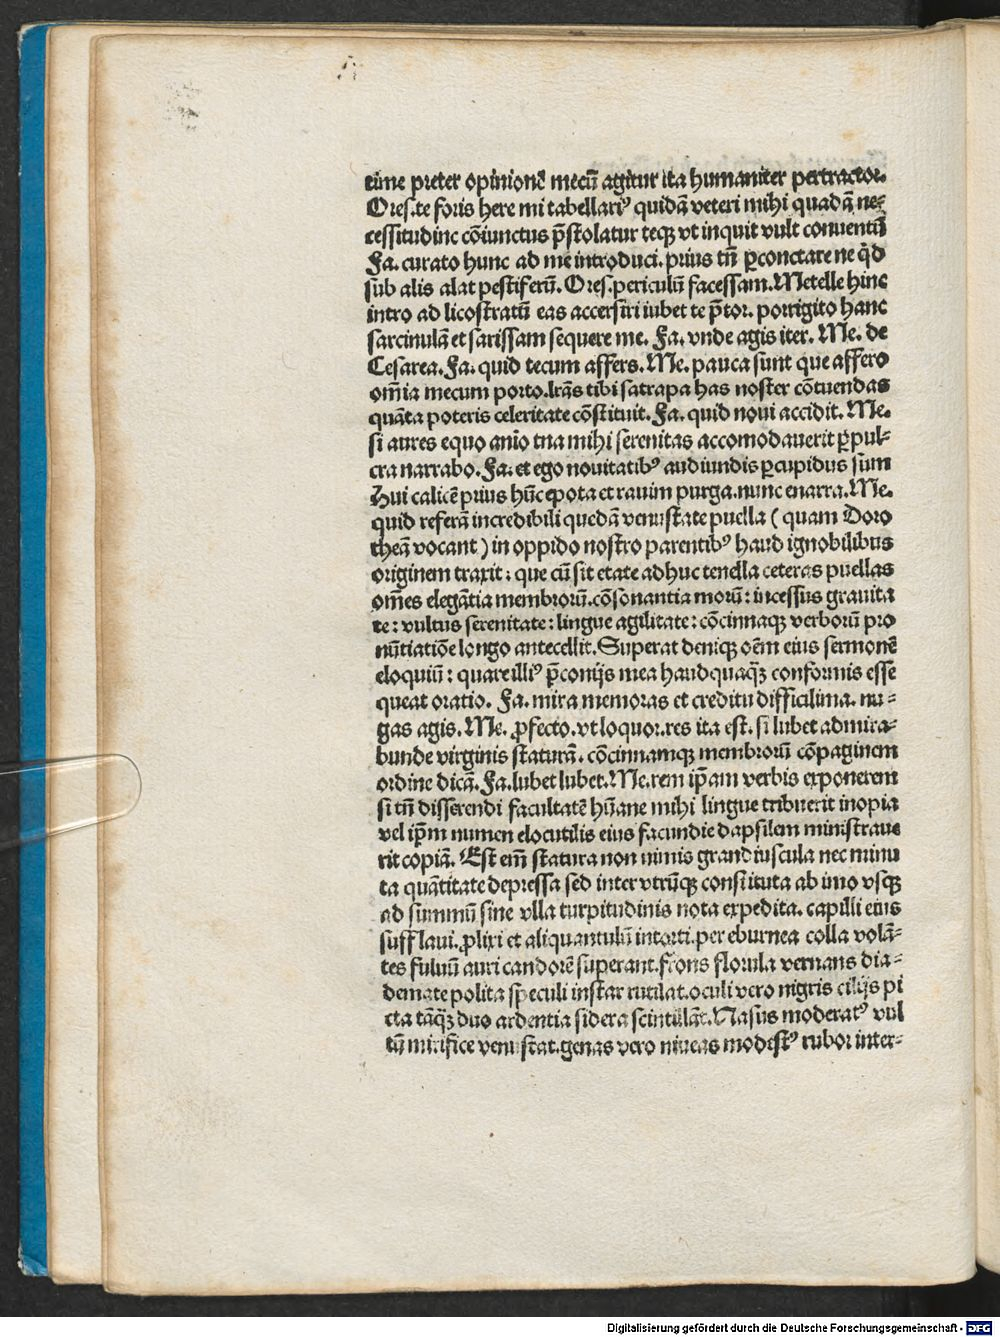 time preter opinionē mecū agitur ita humaniter pertractor.
Ores.te foris here mi tabellariꝰ quidā veteri mihi quadā ne⸗
cessitudine cōiunctus p̄stolatur teqꝫ vt inquit vult conuentū
Fa. curato hunc ad me introduci. prius tn̄ ꝑconctare ne qͥd
sub alis alat pestiferū. Ores. periculū facessam. Metelle hinc
intro ad licostratū eas accersiri iubet te p̄tor. porrigito hanc
sarcinulā et sarissam sequere me. Fa. vnde agis iter. Me. de
Cesarea. Fa. quid tecum affers. Me. pauca sunt que affero
om̄ia mecum porto. lrās tibi satrapa has noster cōtuendas
quāta poteris celeritate cōstituit. Fa. quid noui accidit. Me.
si aures equo anīo tua mihi serenitas accomodauerit ꝑpul⸗
cra narrabo. Fa. et ego nouitatibꝰ audiundis ꝑcupidus sum
Hui calicē prius hūc epota et rauim purga. nunc enarra. Me.
quid referā incredibili quedā venustate puella ( quam Doro
theā vocant ) in oppido nostro parentibꝰ haud ignobilibus
originem traxit: que cū sit etate adhuc tenella ceteras puellas
om̄es elegātia membrorū. cōsonantia morū: incessus grauita
te: vultus serenitate: lingue agilitate: cōcinnaqꝫ verborū pro
nūtiatiōe longo antecellit. Superat deniqꝫ oēm eius sermonē
eloquiū: quare illiꝰ p̄conijs mea haudquaqꝫ̄ conformis esse
queat oratio. Fa. mira memoras et creditu difficilima. nu⸗
gas agis. Me. ꝓfecto. vt loquor. res ita est. si lubet admira⸗
bunde virginis staturā. cōcinnamqꝫ membrorū cōpaginem
ordine dicā. Fa. lubet lubet. Me. rem ip̄am verbis exponerem
si tn̄ disserendi facultatē hūane mihi lingue tribuerit inopia
vel ip̄m numen elocutilis eius facundie dapsilem ministraue
rit copiā. Est em̄ statura non nimis grandiuscula nec minu
ta quātitate depressa sed inter vtrūqꝫ constituta ab imo vsqꝫ
ad summū sine vlla turpitudinis nota expedita. capilli eius
sufflaui. ꝓlixi et aliquantulū intorti. per eburnea colla volā⸗
tes fuluū auri candorē superant. frons florula vernans dia⸗
demate polita speculi instar rutilat. oculi vero nigris cilijs pi
cta tāqꝫ̄ duo ardentia sidera scintillāt. Nasus moderatꝰ vul
tū mirifice venustat. genas vero niueas modestꝰ rubor inter⸗
Digitalisierung gefördert durch die Deutsche Forschungsgemeinschaft - DFG